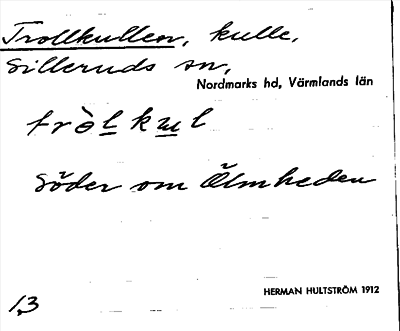 Trollkullen, kulle,
Silleruds sn,
Nordmarks hd, Värmlands län
tròlkul
Söder om Ölmheden
HERMAN HULTSTRÖM 1912
13